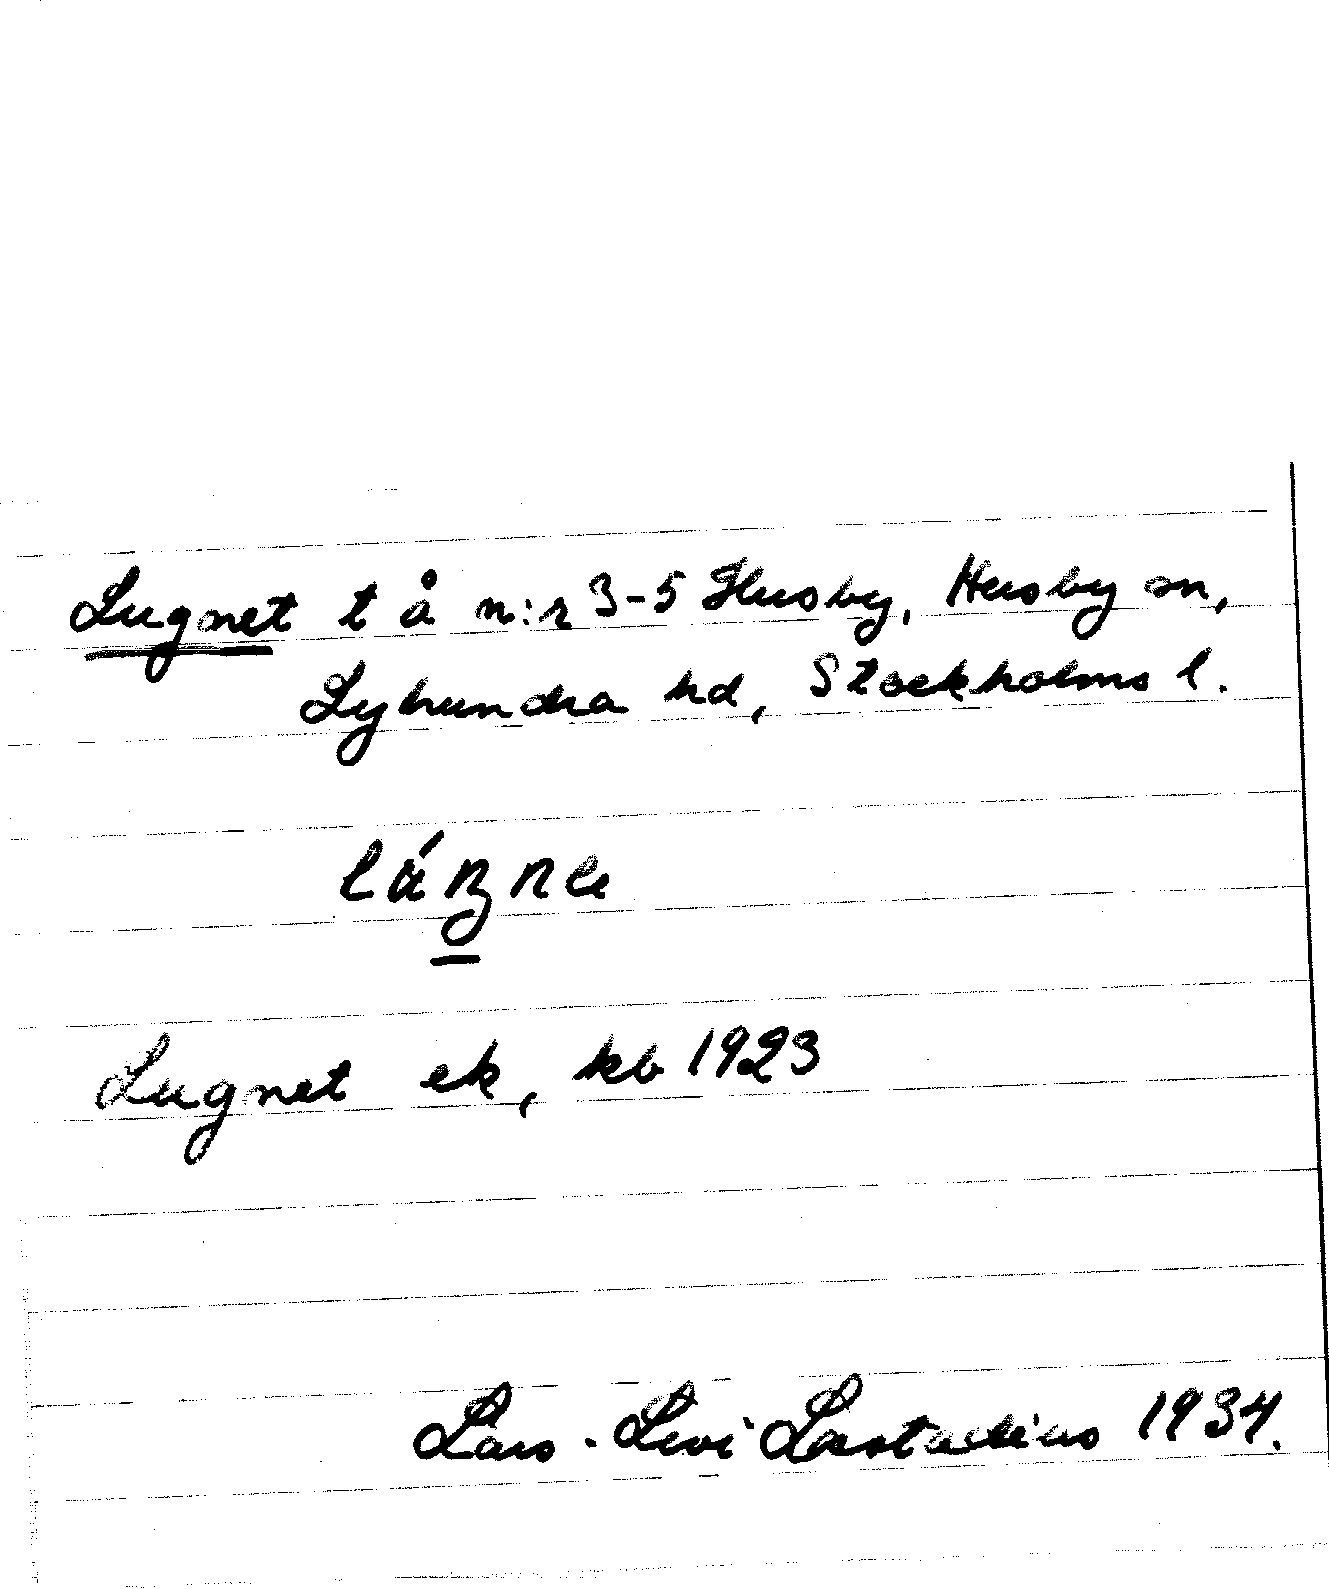 Lugnet t å n:r 3-5 Husby, Husby sn,
Lyhundra hd, Stockholms l.
Lugnet ek, kb 1923
Lars-Levi Læstadius 1934.